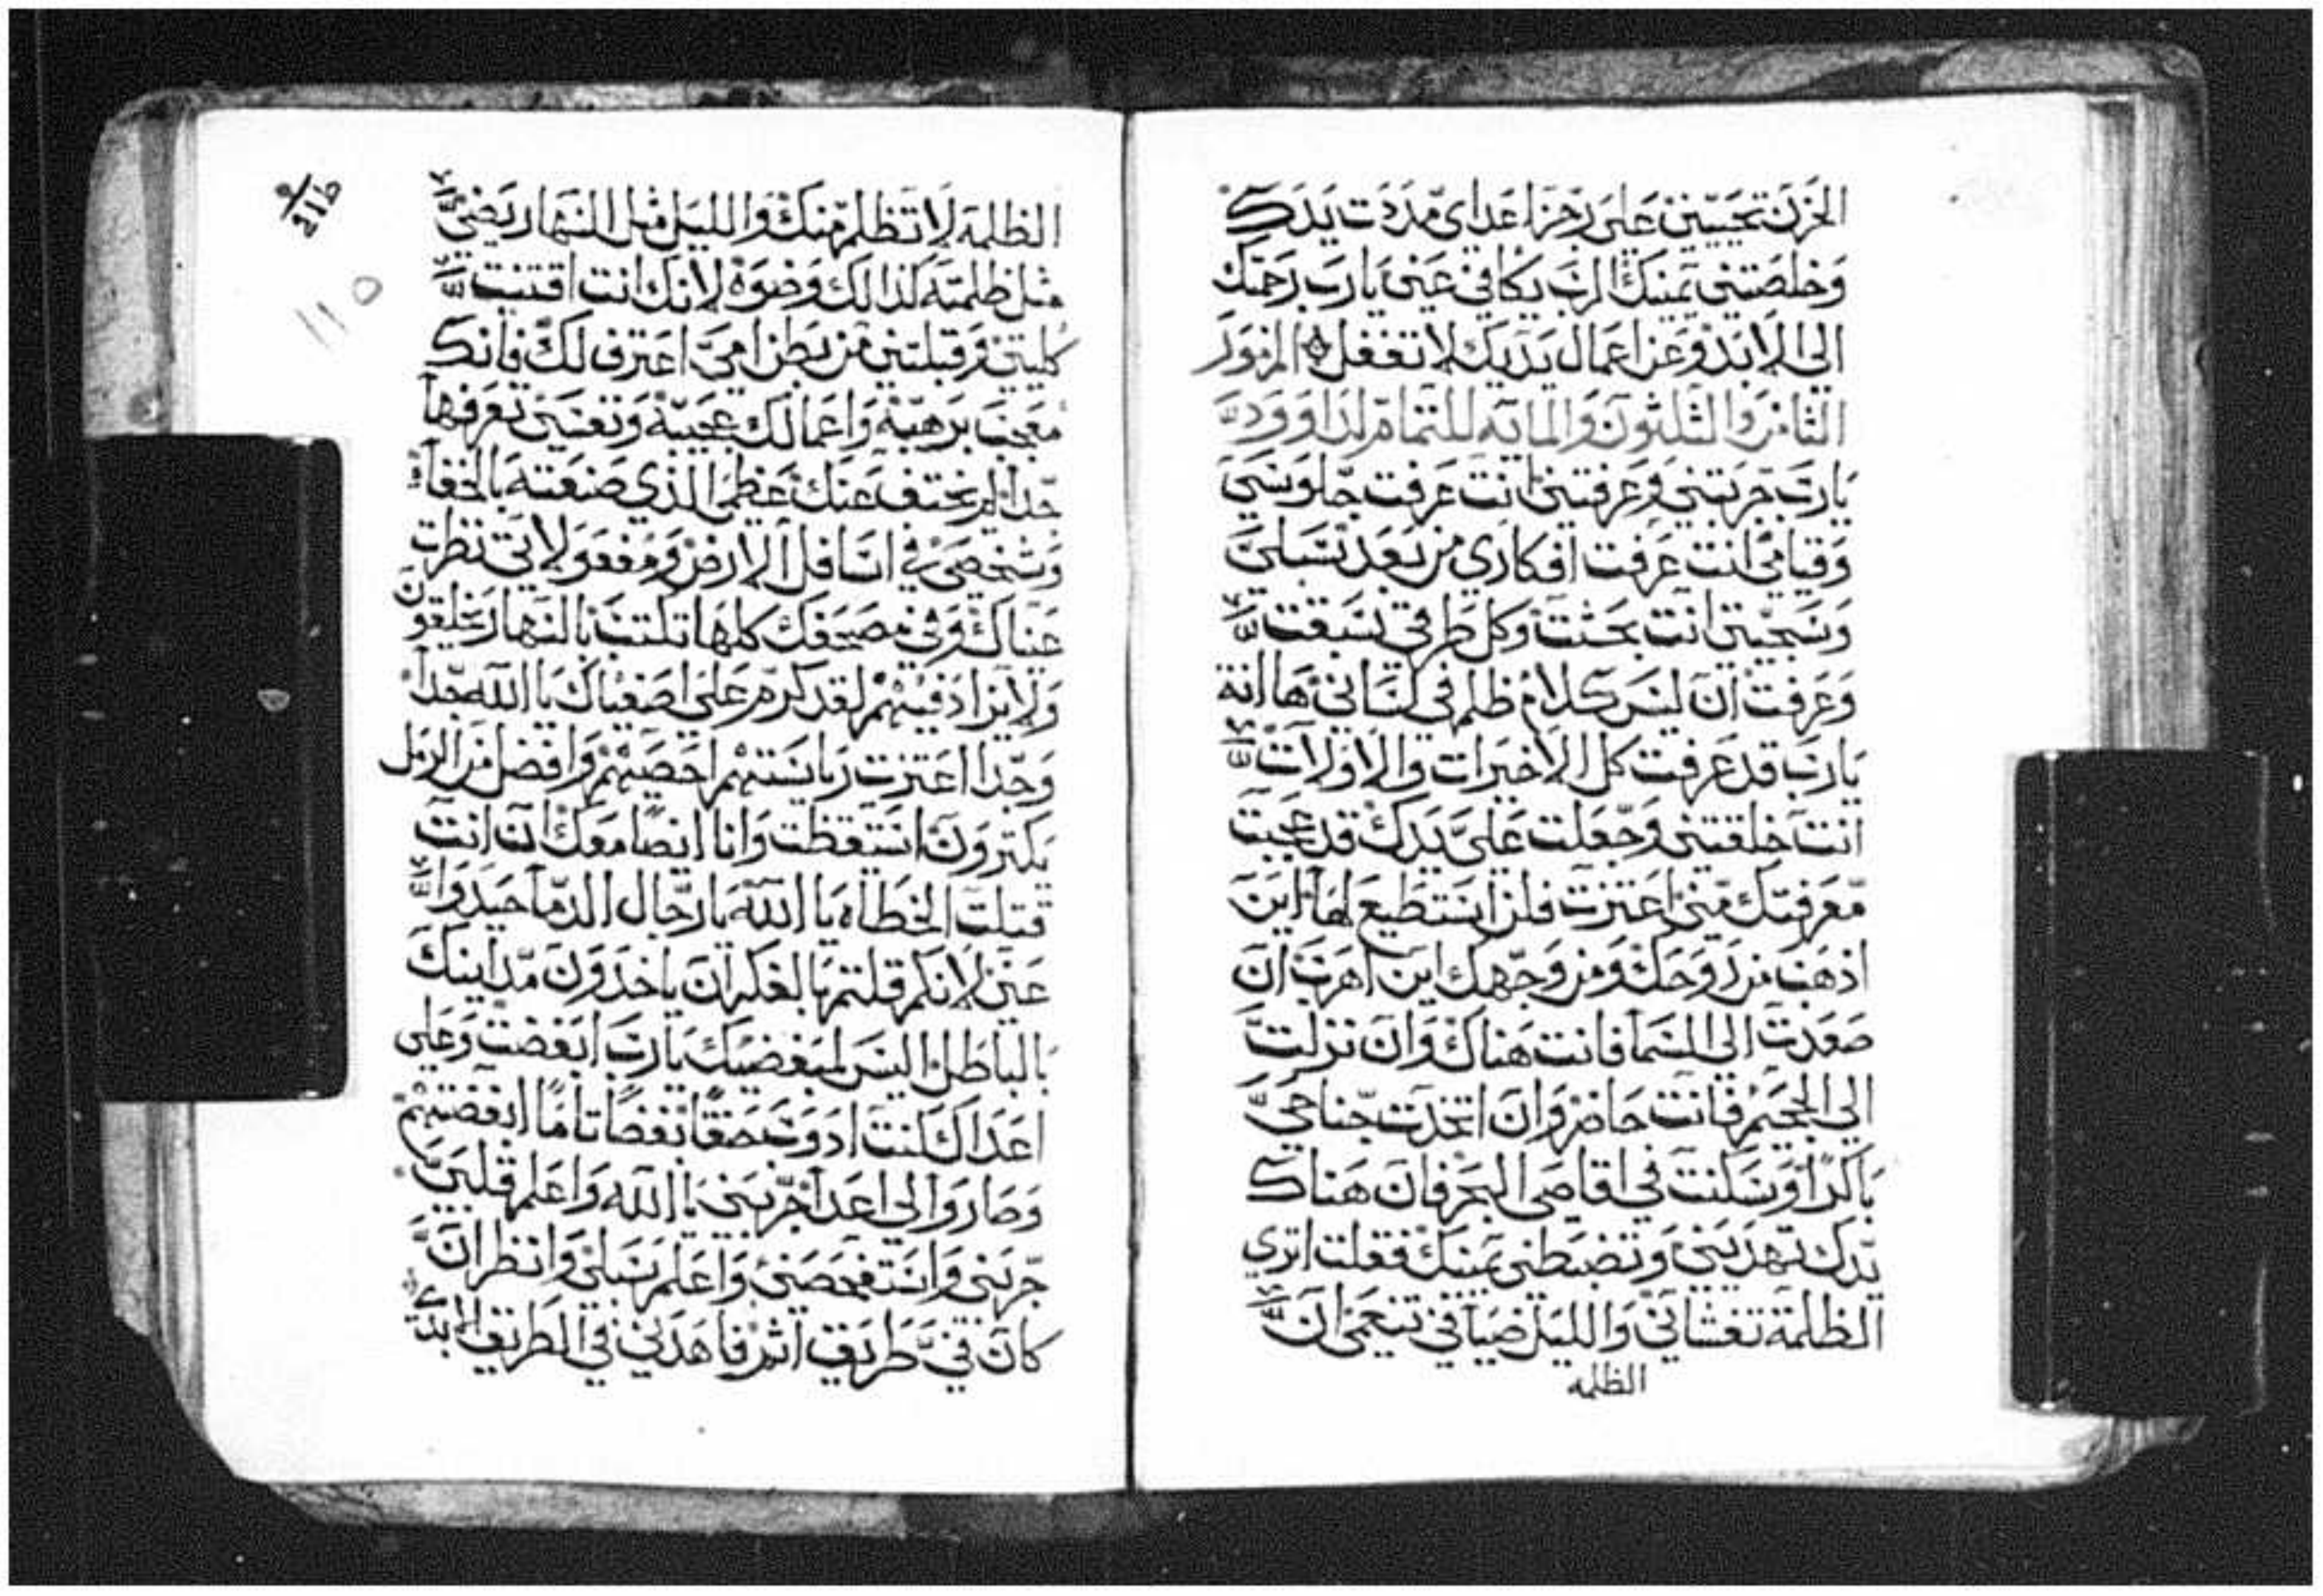 الحزن تحييني على رجز اعداى مددت يدك
وخلصتني يمينك الرب يكافي عني يارب رحمتك
الى الابد وعن اعمال يديك لا تغفل المزمور
الثامن والثلثون والمايه للتمام لداوود
يارب جربتني وعرفتني انت عرفت جلوسي
وقيامي انت عرفت افكاري من بعد سبلي
انت بحثت وكل طرقي سبقت
وعرفت ان ليس كلام ظلم في لساني ها انه
يارب قد عرفت كل الاخيرات والاولات
انت خلقتني وجعلت علي يدك قد عجبت
معرفتك مني اعتزت فلن استطيع لها اين
اذهب من روحك ومن وجهك اين اهرب ان
صعدت الى السما فانت هناك وان نزلت
الي الجحيم فانت حاضر وان اتخدت جناحي
باكرا وسكنت في اقاصي البحر فان هناك
يدك تهديني وتضبطني يمينك فقلت اتري
الظلمة تغشاني والليل ضيا في تنعمي ان
الظلمه
الظلمه لا تظلم منك والليل مثل النهار يضي
مثل ظلمته كذالك وضوه لانك انت اقتنيت
كليتي وقبلتني من بطن امي اعترف لك فانك
معجب برهبة واعمالك عجيبة ونفسي تعرفها
جدا لم يختف عنك عظمي الذي صنعته بالخفا
وشخصي في اسافل الارض ومفعولاتي نظرت
عيناك وفي مصحفك كلها تكتب بالنهار يخلقون
ولا يزاد فيهم لقد كرم علي اصفياك يا الله جدا
وجدا اعتزت رياستهم احصيهم وافضل من الرمل
يكثرون استيقظت وانا ايضا معك ان انت
قتلت الخطاه يا الله يا رجال الدما حيدوا
عني لانكم قلتم بالفكر ان ياخدون مداينك
بالباطل اليس لمبغضيك يارب ابغضت وعلى
اعداك كنت بغضا تاما ابغضتهم
وصاروا لي اعدا جربني يا الله واعلم قلبي
جربني واستفحصني واعلم سبلي وانظر ان
كان في طريق اثم فاهدني في الطريق الابدي